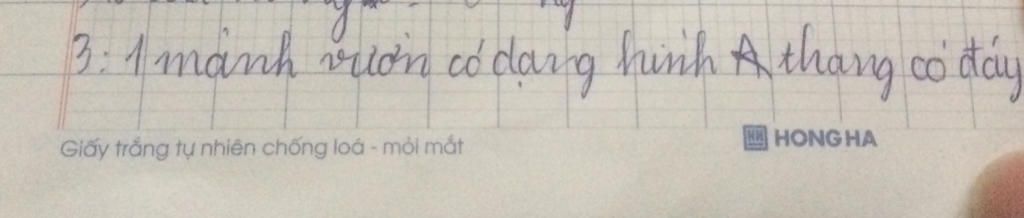 3: 1 mảnh vườn có dạng hình thang có đáy
Giấy trắng tự nhiên chống loá - mỏi mắt
HH HONG HA